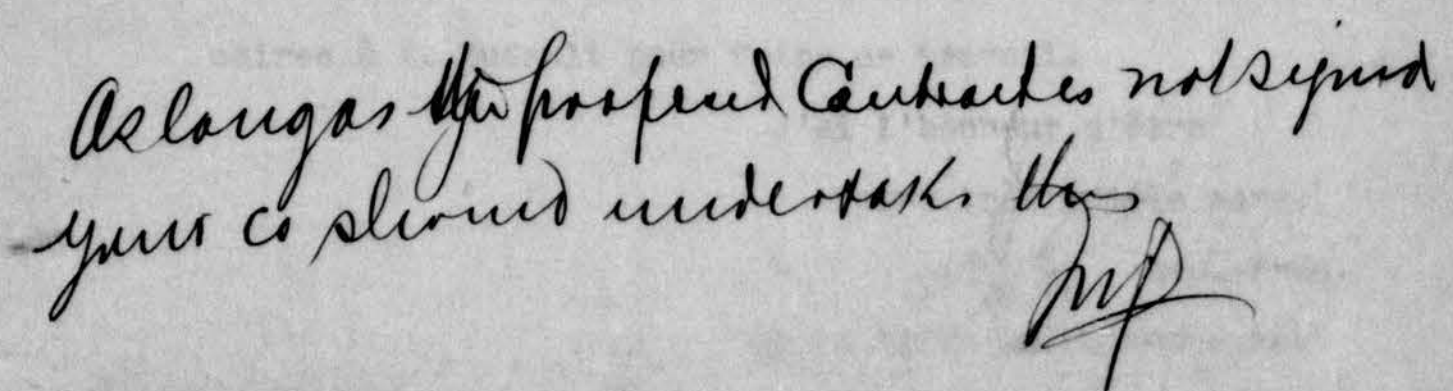 As long as the proposed Contract is not signed
your Co should undertake this